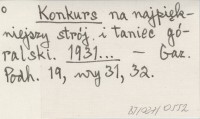 Konkurs na najpięk-
niejszy strój i taniec gó-
ralski. 1931... — Gaz.
Podh. 19, nry 31, 32.